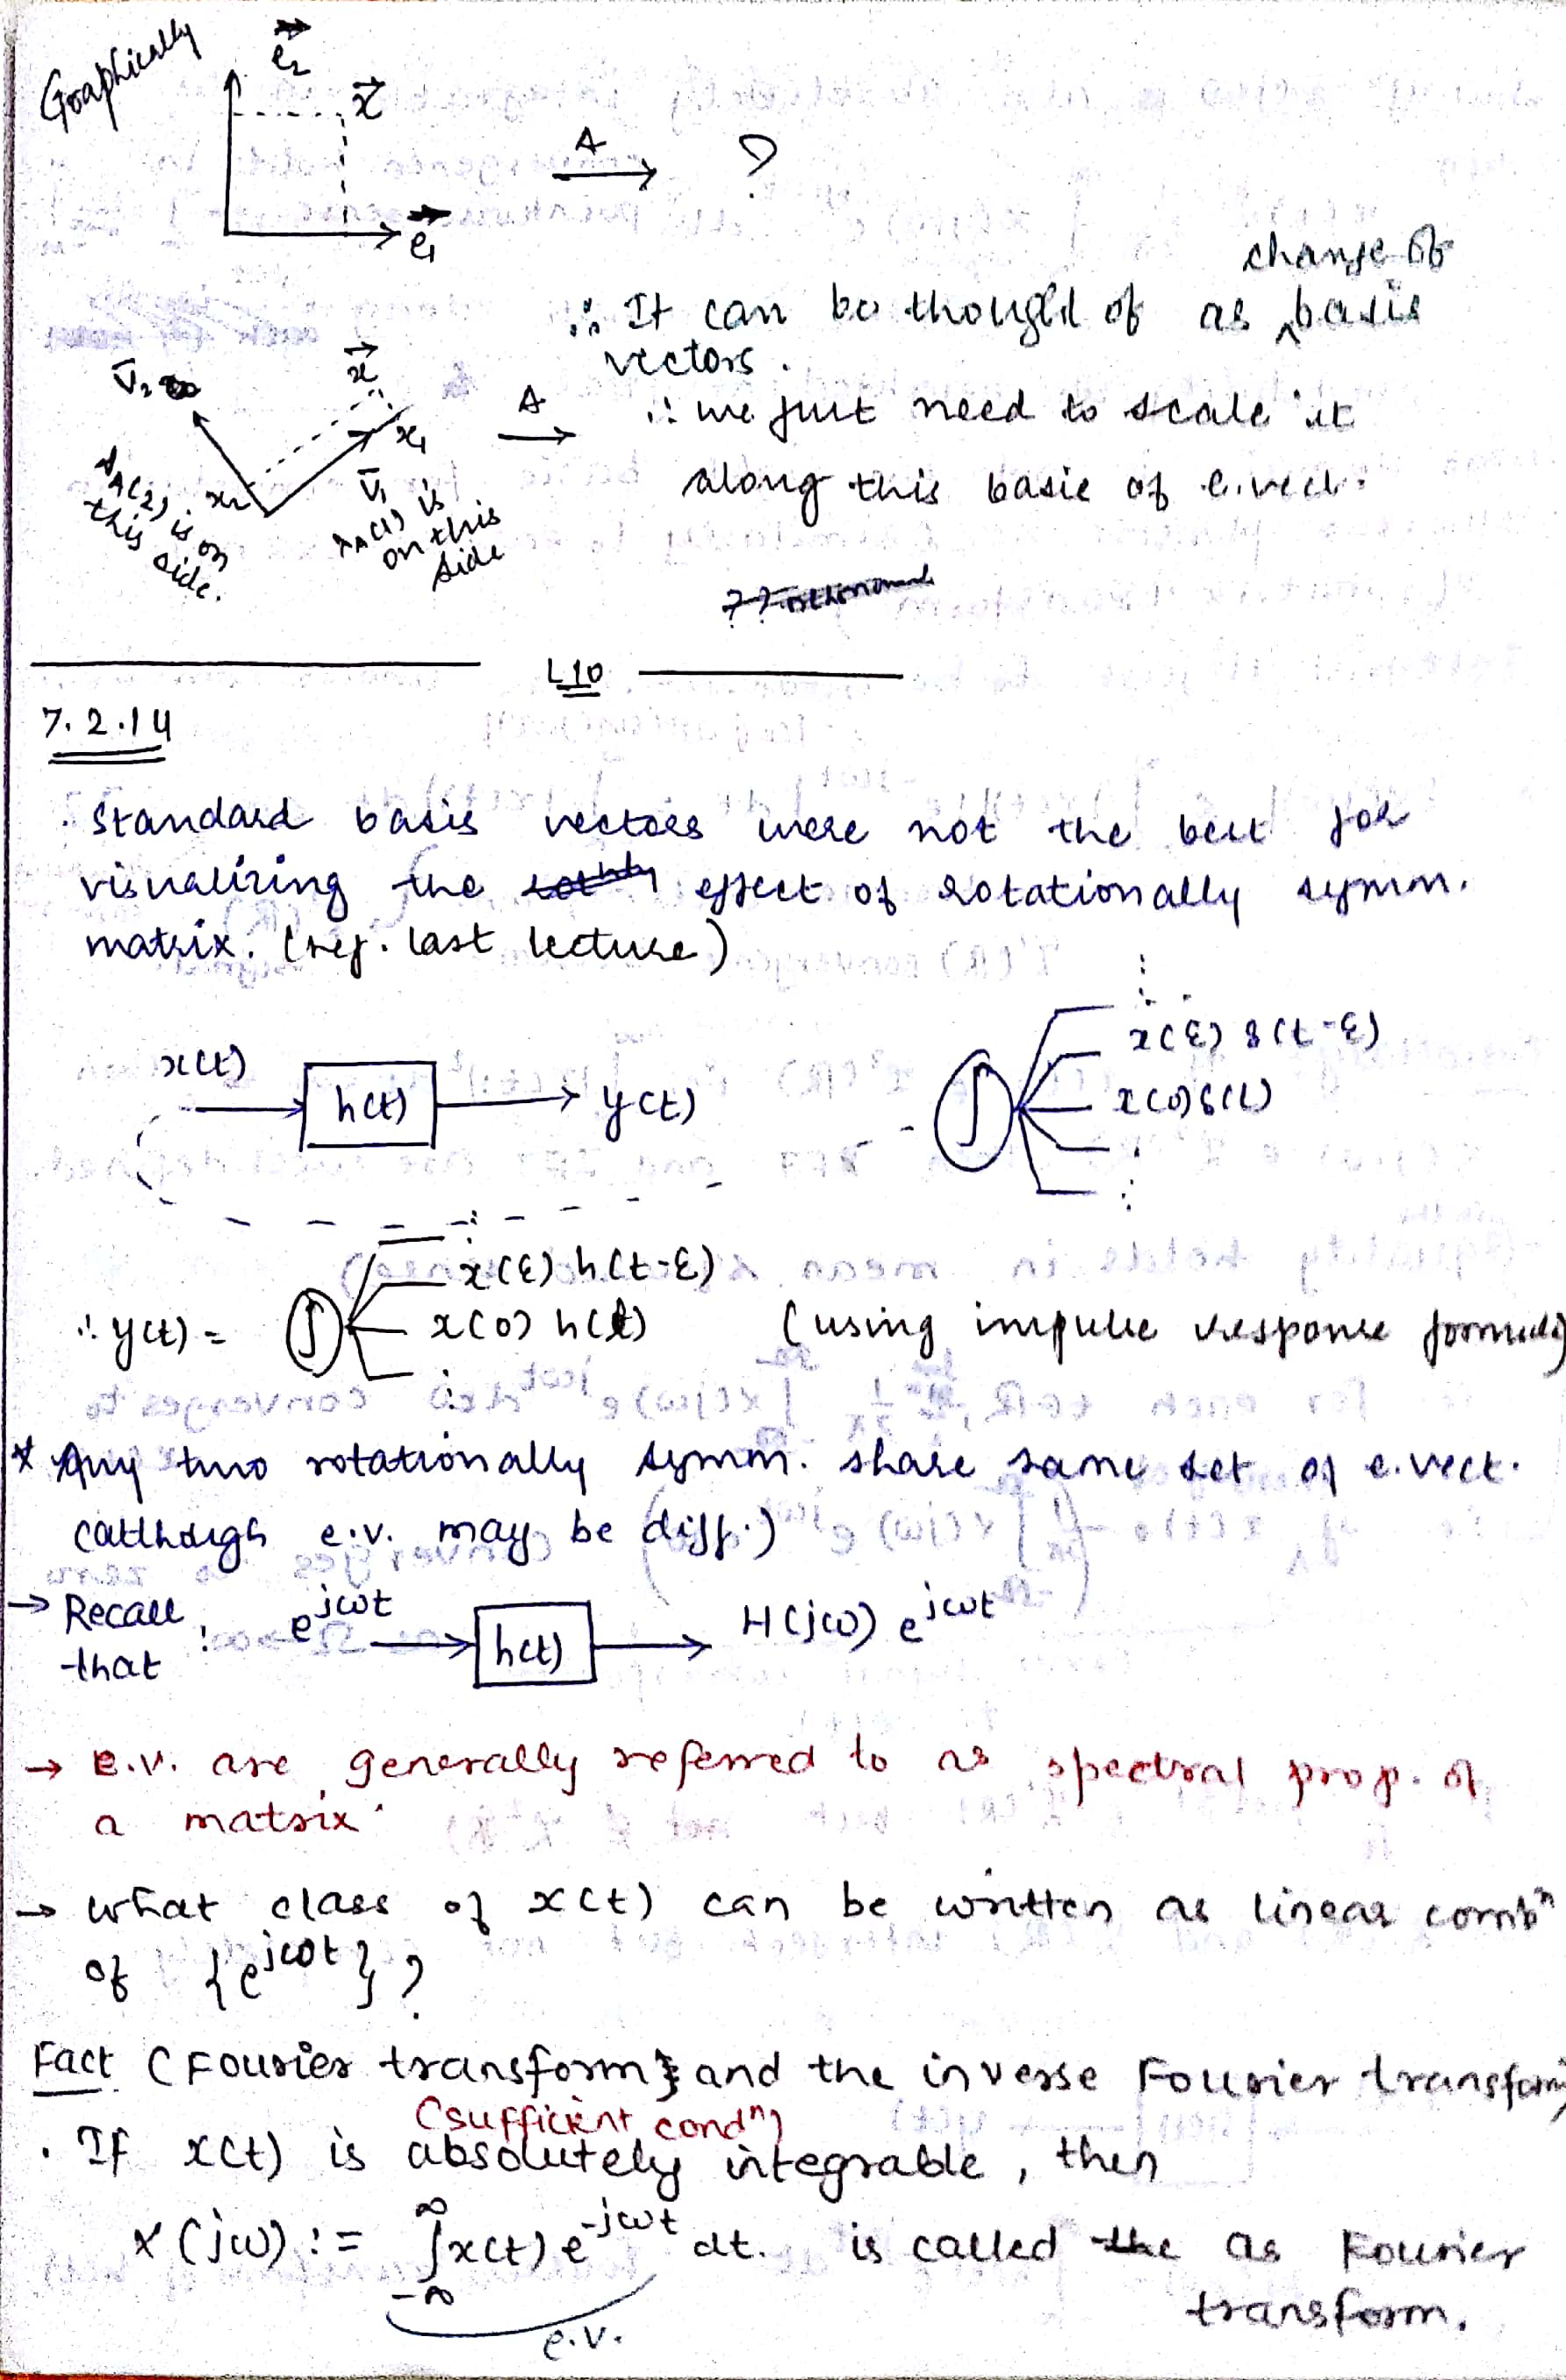 Graphically
e⃗₂
x⃗
A
?
e⃗₁
change of
∴ It can be thought of as ‸basis
vectors.
∴ we just need to scale it
along this basis of e.vect.
v̄₂
x⃗
x₁
A
x₂
v̄₁
λA(2) is on this side.
λA(1) is on this side
L10
7.2.14
. Standard basis vectors were not the best for
visualizing the effect of rotationally symm.
matrix. (ref. last lecture)
x(t)
h(t)
y(t)
∫
x(ε) δ(t-ε)
x(0) δ(t)
∴ y(t) = ∫
x(ε) h(t-ε)
x(0) h(t) (using impulse response formula)
* Any two rotationally symm. share same set of e.vect.
(although e.v. may be diff.)
→ Recall that : e^{jωt} → h(t) → H(jω) e^{jωt}
→ e.v. are generally referred to as spectral prop. of
a matrix.
→ What class of x(t) can be written as linear combⁿ
of {e^{jωt}} ?
Fact (Fourier transform and the inverse Fourier transform
(sufficient condⁿ)
. If x(t) is absolutely integrable, then
X(jω) := ∫_{-∞}^{∞} x(t) e^{-jωt} dt. is called the as Fourier
transform.
e.v.